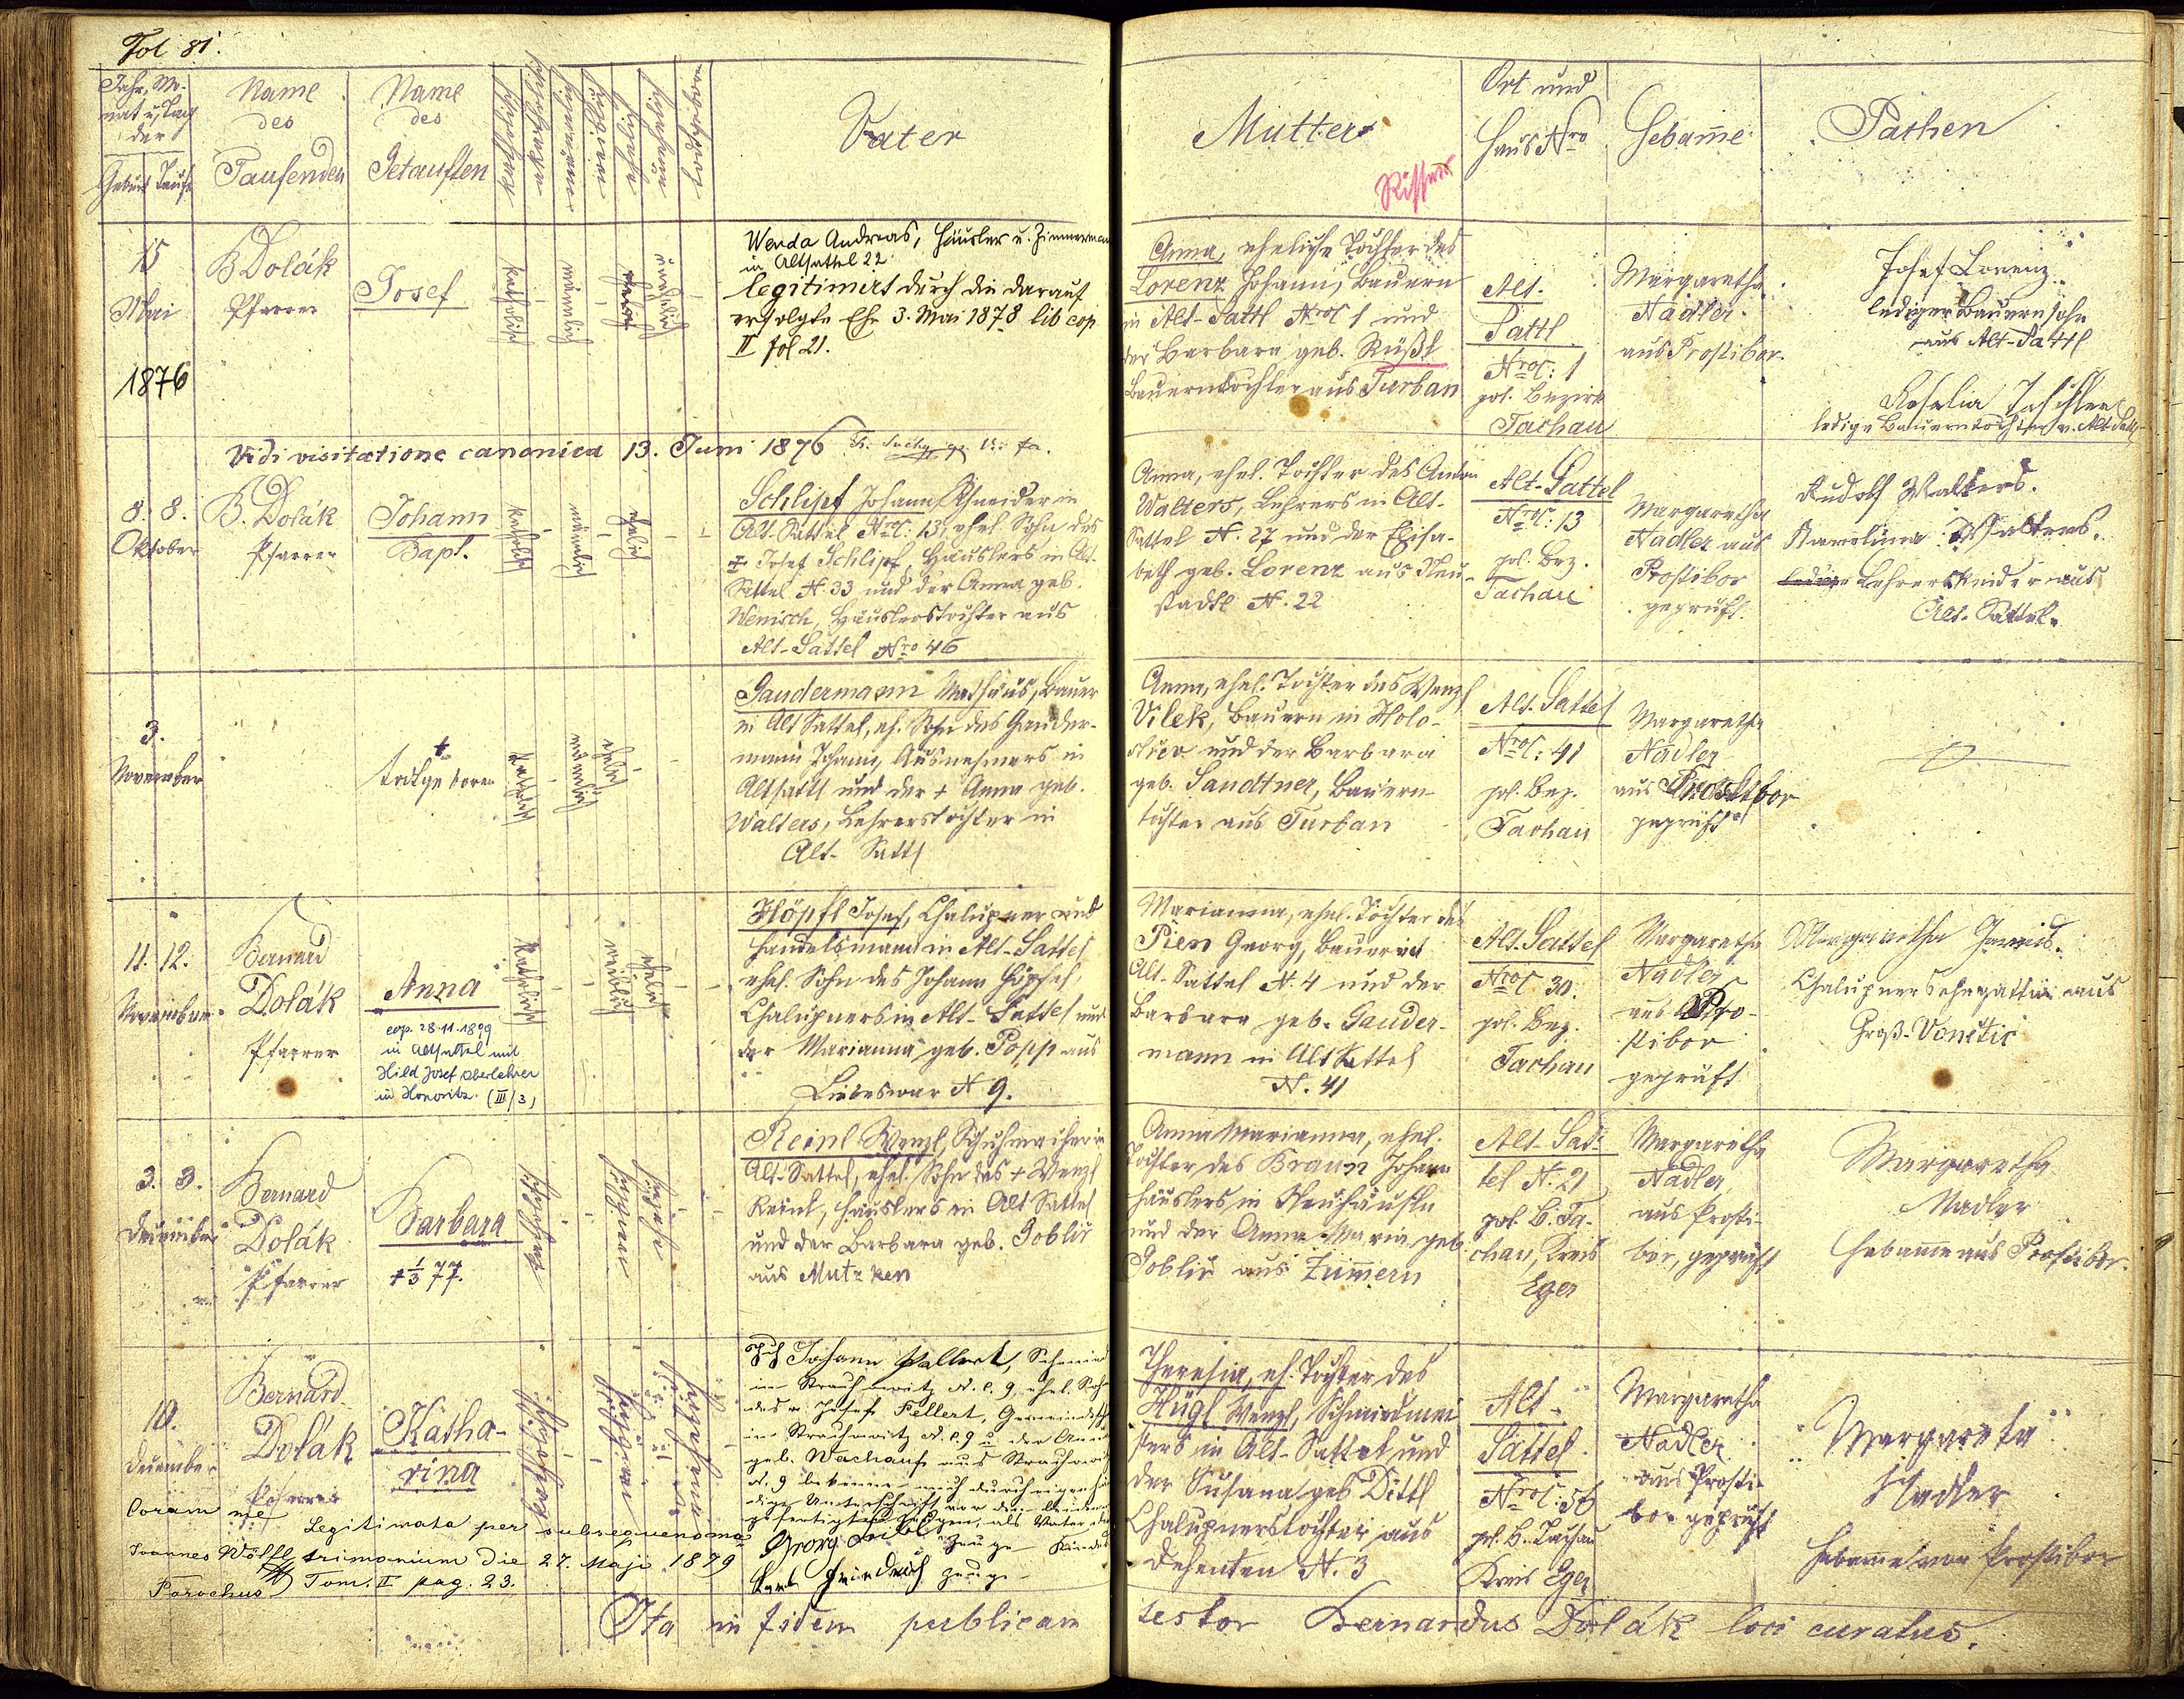 Fol 81.
Jahr, Mo-
nat u. Tag
der
Geburt Taufe
Name
des
Taufenden
Name
des
Getauften
katholisch
akatholisch
männlich
weiblich
ehelich
unehelich
todtgeboren
Vater
Mutter
Ort und
Haus Nro
Hebamme
Pathen
15
Mai
1876
B Dolák
Pfarrer
Josef
katholisch
männlich
unehelich
Wenda Andreas, Häusler u. Zimmermann
in Altsattel 22
legitimirt durch die darauf
erfolgte Ehe 3. Mai 1878 lib cop
II fol 21.
Anna, eheliche Tochter des
Lorenz Johann, Bauern
in Alt-Sattl NroC 1 und
der Barbara geb. Rüßl
Bauerntochter aus Turban
Alt-
Sattl
NroC: 1
pol. Bezirk
Tachau
Margaretha
Nadler
aus Prostibor
Josef Lorenz
lediger Bauernsohn
aus Alt-Sattl
Rosalia
ledige Bauerntochter v. Alt Sattl
Vidi visitatione canonica 13. Juni 1876
8. 8.
Oktober
B. Dolák
Pfarrer
Johann
Bapt.
katholisch
männlich
ehelich
Schlipf Johann, Schneider in
Alt-Sattel NroC: 13, ehel. Sohn des
+ Josef Schlipf, Häuslers in Alt-
Sattel N. 33 und der Anna geb.
Wenisch, Häuslerstochter aus
Alt-Sattel Nro 46
Anna, ehel. Tochter des Anton
Walters, Lehrers in Alt-
Sattel N. 27 und der Elisa-
beth geb. Lorenz aus Neu-
stadtl N. 22
Alt-Sattel
NroC: 13
pol. Bez.
Tachau
Margaretha
Nadler aus
Prostibor
geprüft.
Rudolf Walters.
Karolina Walters.
ledige Lehrerskinder aus
Alt-Sattel.
3.
November
+
todtgeboren
katholisch
männlich
ehelich
Gaudermann Mathäus, Bauer
in Alt Sattel, eh. Sohn des Gauder-
mann Johann, Ausnehmers in
Altsattl und der + Anna geb.
Walters, Lehrerstochter in
Alt-Sattl
Anna, ehel. Tochter des Wenzl
Vilek, Bauern in Holo-
střev und der Barbara
geb. Sandtner, Bauern-
tochter aus Turban
Alt-Sattel
NroC: 41
pol. Bez.
Tachau
Margaretha
Nadler
aus Prostibor
geprüft
11. 12.
November
Bernard
Dolák
Pfarrer
Anna
cop. 28.11.1899
in Altsattel mit
Hild Josef Oberlehrer
in Honoritz (III/3)
katholisch
weiblich
ehelich
Höpfl Josef, Chalupner und
Handelsmann in Alt-Sattel
ehel. Sohn des Johann Höpfel,
Chalupners in Alt-Sattel und
der Marianna geb. Popp aus
Liebeswar N 9.
Marianna, ehel. Tochter des
Pien Georg, Bauer in
Alt-Sattel N. 4 und der
Barbara geb. Gauder-
mann in Alt Sattel
N. 41
Alt-Sattel
NroC 30.
pol. Bez.
Tachau
Margaretha
Nadler
aus Pro-
stibor
geprüft
Margaretha
Chalupnersehegattin aus
Groß-Vonětic
3. 3.
Dezember
Bernard
Dolák
Pfarrer
Barbara
+ 1/3 77.
katholisch
weiblich
ehelich
Reinl Wenzl, Schuhmacher in
Alt-Sattel, ehel. Sohn des + Wenzl
Reinl, Häuslers in Alt Sattel
und der Barbara geb. Goblir
aus Mutzken
Anna Marianna, ehel.
Tochter des Braun Johann
Häuslers in Neuhäusln
und der Anna Maria geb.
Goblir aus Zummern
Alt-Sat-
tel N. 21
pol. B. Ta-
chau, Kreis
Eger
Margaretha
Nadler
aus Prosti-
bor, geprüft
Margaretha
Nadler
Hebamme aus Prostibor.
10.
December
Bernard
Dolák
Pfarrer
Katha-
rina
katholisch
weiblich
unehelich
Ich Johann Pellert, Schmied
in Strachowitz N. c. 9, ehel. Sohn
des Josef Pellert,
in Strachowitz N. c. 9 u. der Anna
geb. Wachauf aus Strachowitz
N. 9 bekenne mich durch eigenhän-
dige Unterschrift vor den beiden
gefertigten Zeugen, als Vater des
Kindes
Georg Zeuge
Friedrich Zeuge
Theresia, eh. Tochter des
Hügl Wenzl, Schmiedmei-
sters in Alt-Sattel und
der Susana geb Dittl
Chalupnerstochter aus
Dehenten N. 3
Alt-
Sattel
NroC: 56
pol. B. Tachau
Kreis Eger
Margaretha
Nadler
aus Prosti-
bor geprüft
Margareta
Nadler
Hebamme von Prostibor
Coram me
Legitimata per subsequens ma-
Joannes Wölfl trimonium die 27. Maji 1879
Parochus Tom. II pag. 23.
Ita in fidem publicam
testor Bernardus Dolák loci curatus.